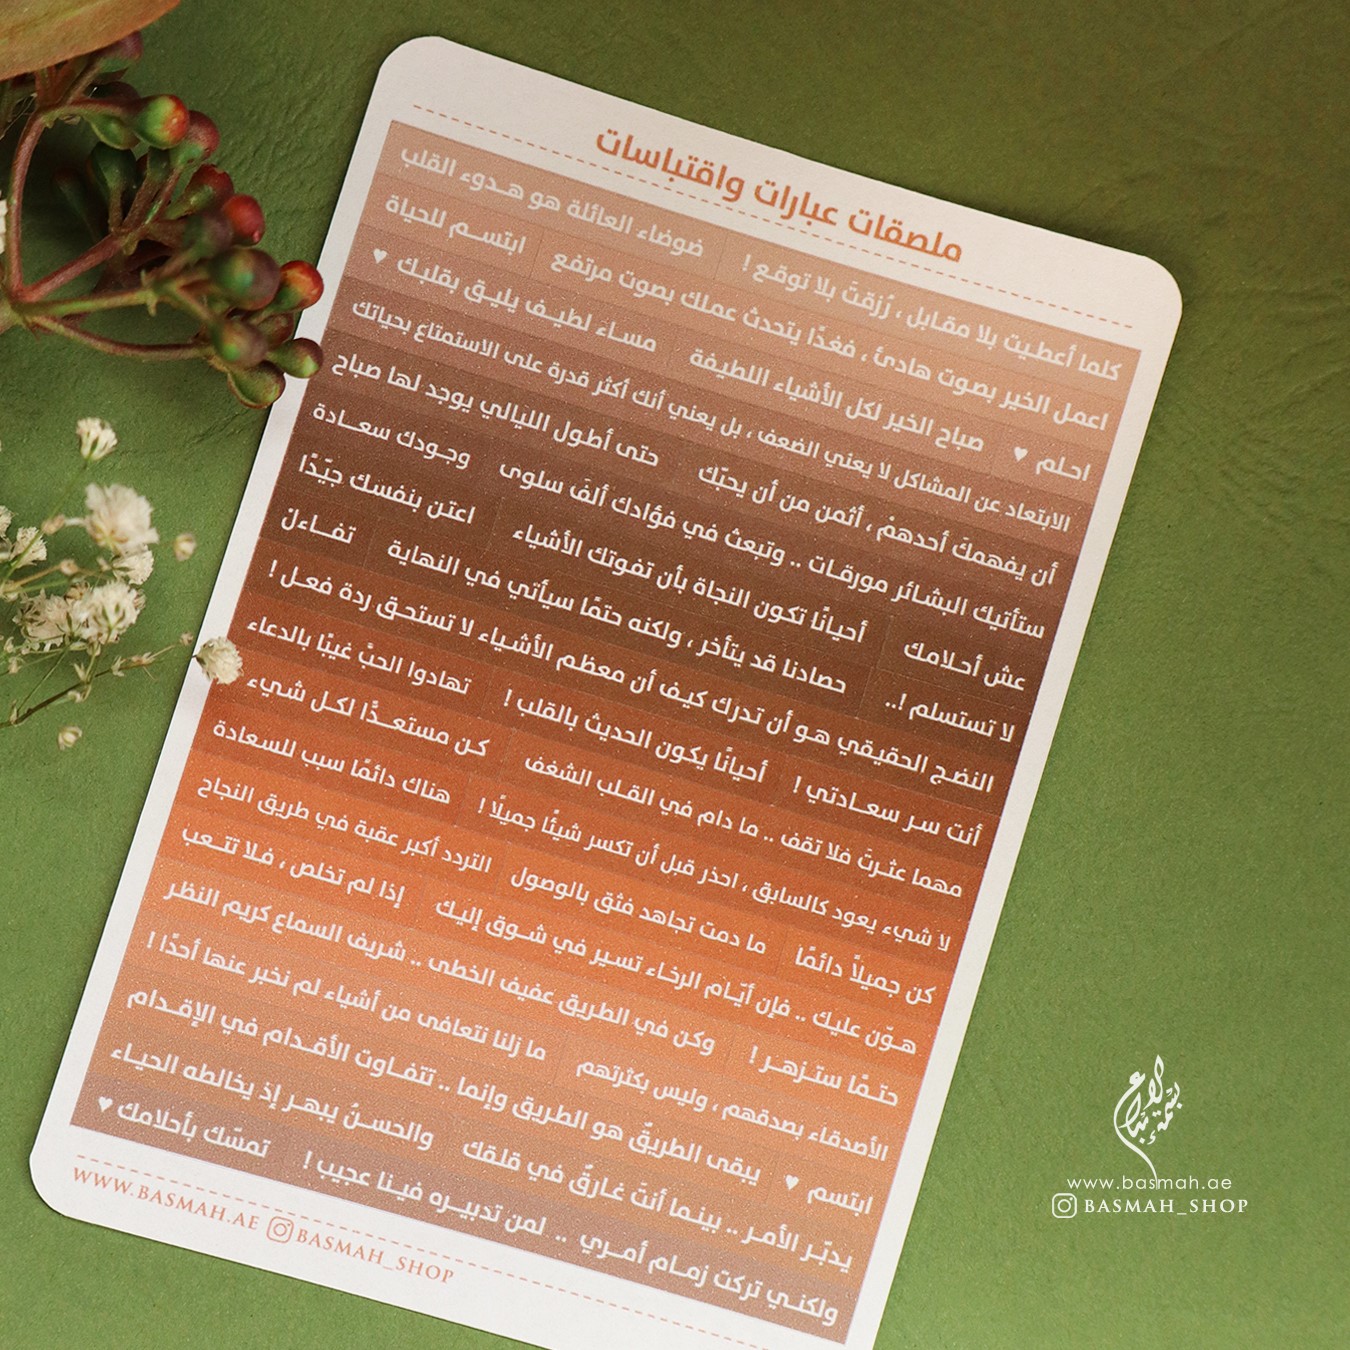 ملصقات عبارات واقتباسات
كلما أعطيت بلا مقابل ، رُزقتَ بلا توقع ! ضوضاء العائلة هو هدوء القلب
اعمل الخير بصوت هادئ ، فغدًا يتحدث عملك بصوت مرتفع ابتسم للحياة
احلم ♥ صباح الخير لكل الأشياء اللطيفة مساء لطيف يليق بقلبك ♥
الابتعاد عن المشاكل لا يعني الضعف ، بل يعني أنك أكثر قدرة على الاستمتاع بحياتك
أن يفهمكَ أحدهمْ ، أثمن من أن يحبّك حتى أطول الليالي يوجد لها صباح
ستأتيك البشائر مورقات .. وتبعث في فؤادك ألفَ سلوى وجودك سعادة
عش أحلامك أحيانًا تكون النجاة بأن تفوتك الأشياء اعتن بنفسك جيّدًا
لا تستسلم !.. حصادنا قد يتأخر ، ولكنه حتمًا سيأتي في النهاية تفاءل
النضج الحقيقي هو أن تدرك كيف أن معظم الأشياء لا تستحق ردة فعل !
أنت سر سعادتي ! أحيانًا يكون الحديث بالقلب ! تهادوا الحبّ غيبًا بالدعاء
مهما عثرتَ فلا تقف .. ما دام في القلب الشغف كن مستعدًّا لكل شيء
لا شيء يعود كالسابق ، احذر قبل أن تكسر شيئًا جميلًا ! هناك دائمًا سبب للسعادة
كن جميلاً دائمًا ما دمت تجاهد فثق بالوصول التردد أكبر عقبة في طريق النجاح
هوّن عليك .. فإن أيّام الرخاء تسير في شوق إليك إذا لم تخلص ، فلا تتعب
حتمًا ستزهر ! وكن في الطريق عفيف الخطى .. شريف السماع كريم النظر
الأصدقاء بصدقهم ، وليس بكثرتهم ما زلنا نتعافى من أشياء لم نخبر عنها أحدًا !
ابتسم ♥ يبقى الطريقُ هو الطريق وإنما .. تتفاوت الأقدام في الإقدام
يدبّر الأمر .. بينما أنتَ غارقٌ في قلقك والحسنُ يبهر إذ يخالطه الحياء
ولكني تركت زمام أمري .. لمن تدبيره فينا عجيب ! تمسّك بأحلامك ♥
WWW.BASMAH.AE BASMAH_SHOP
www.basmah.ae
BASMAH_SHOP